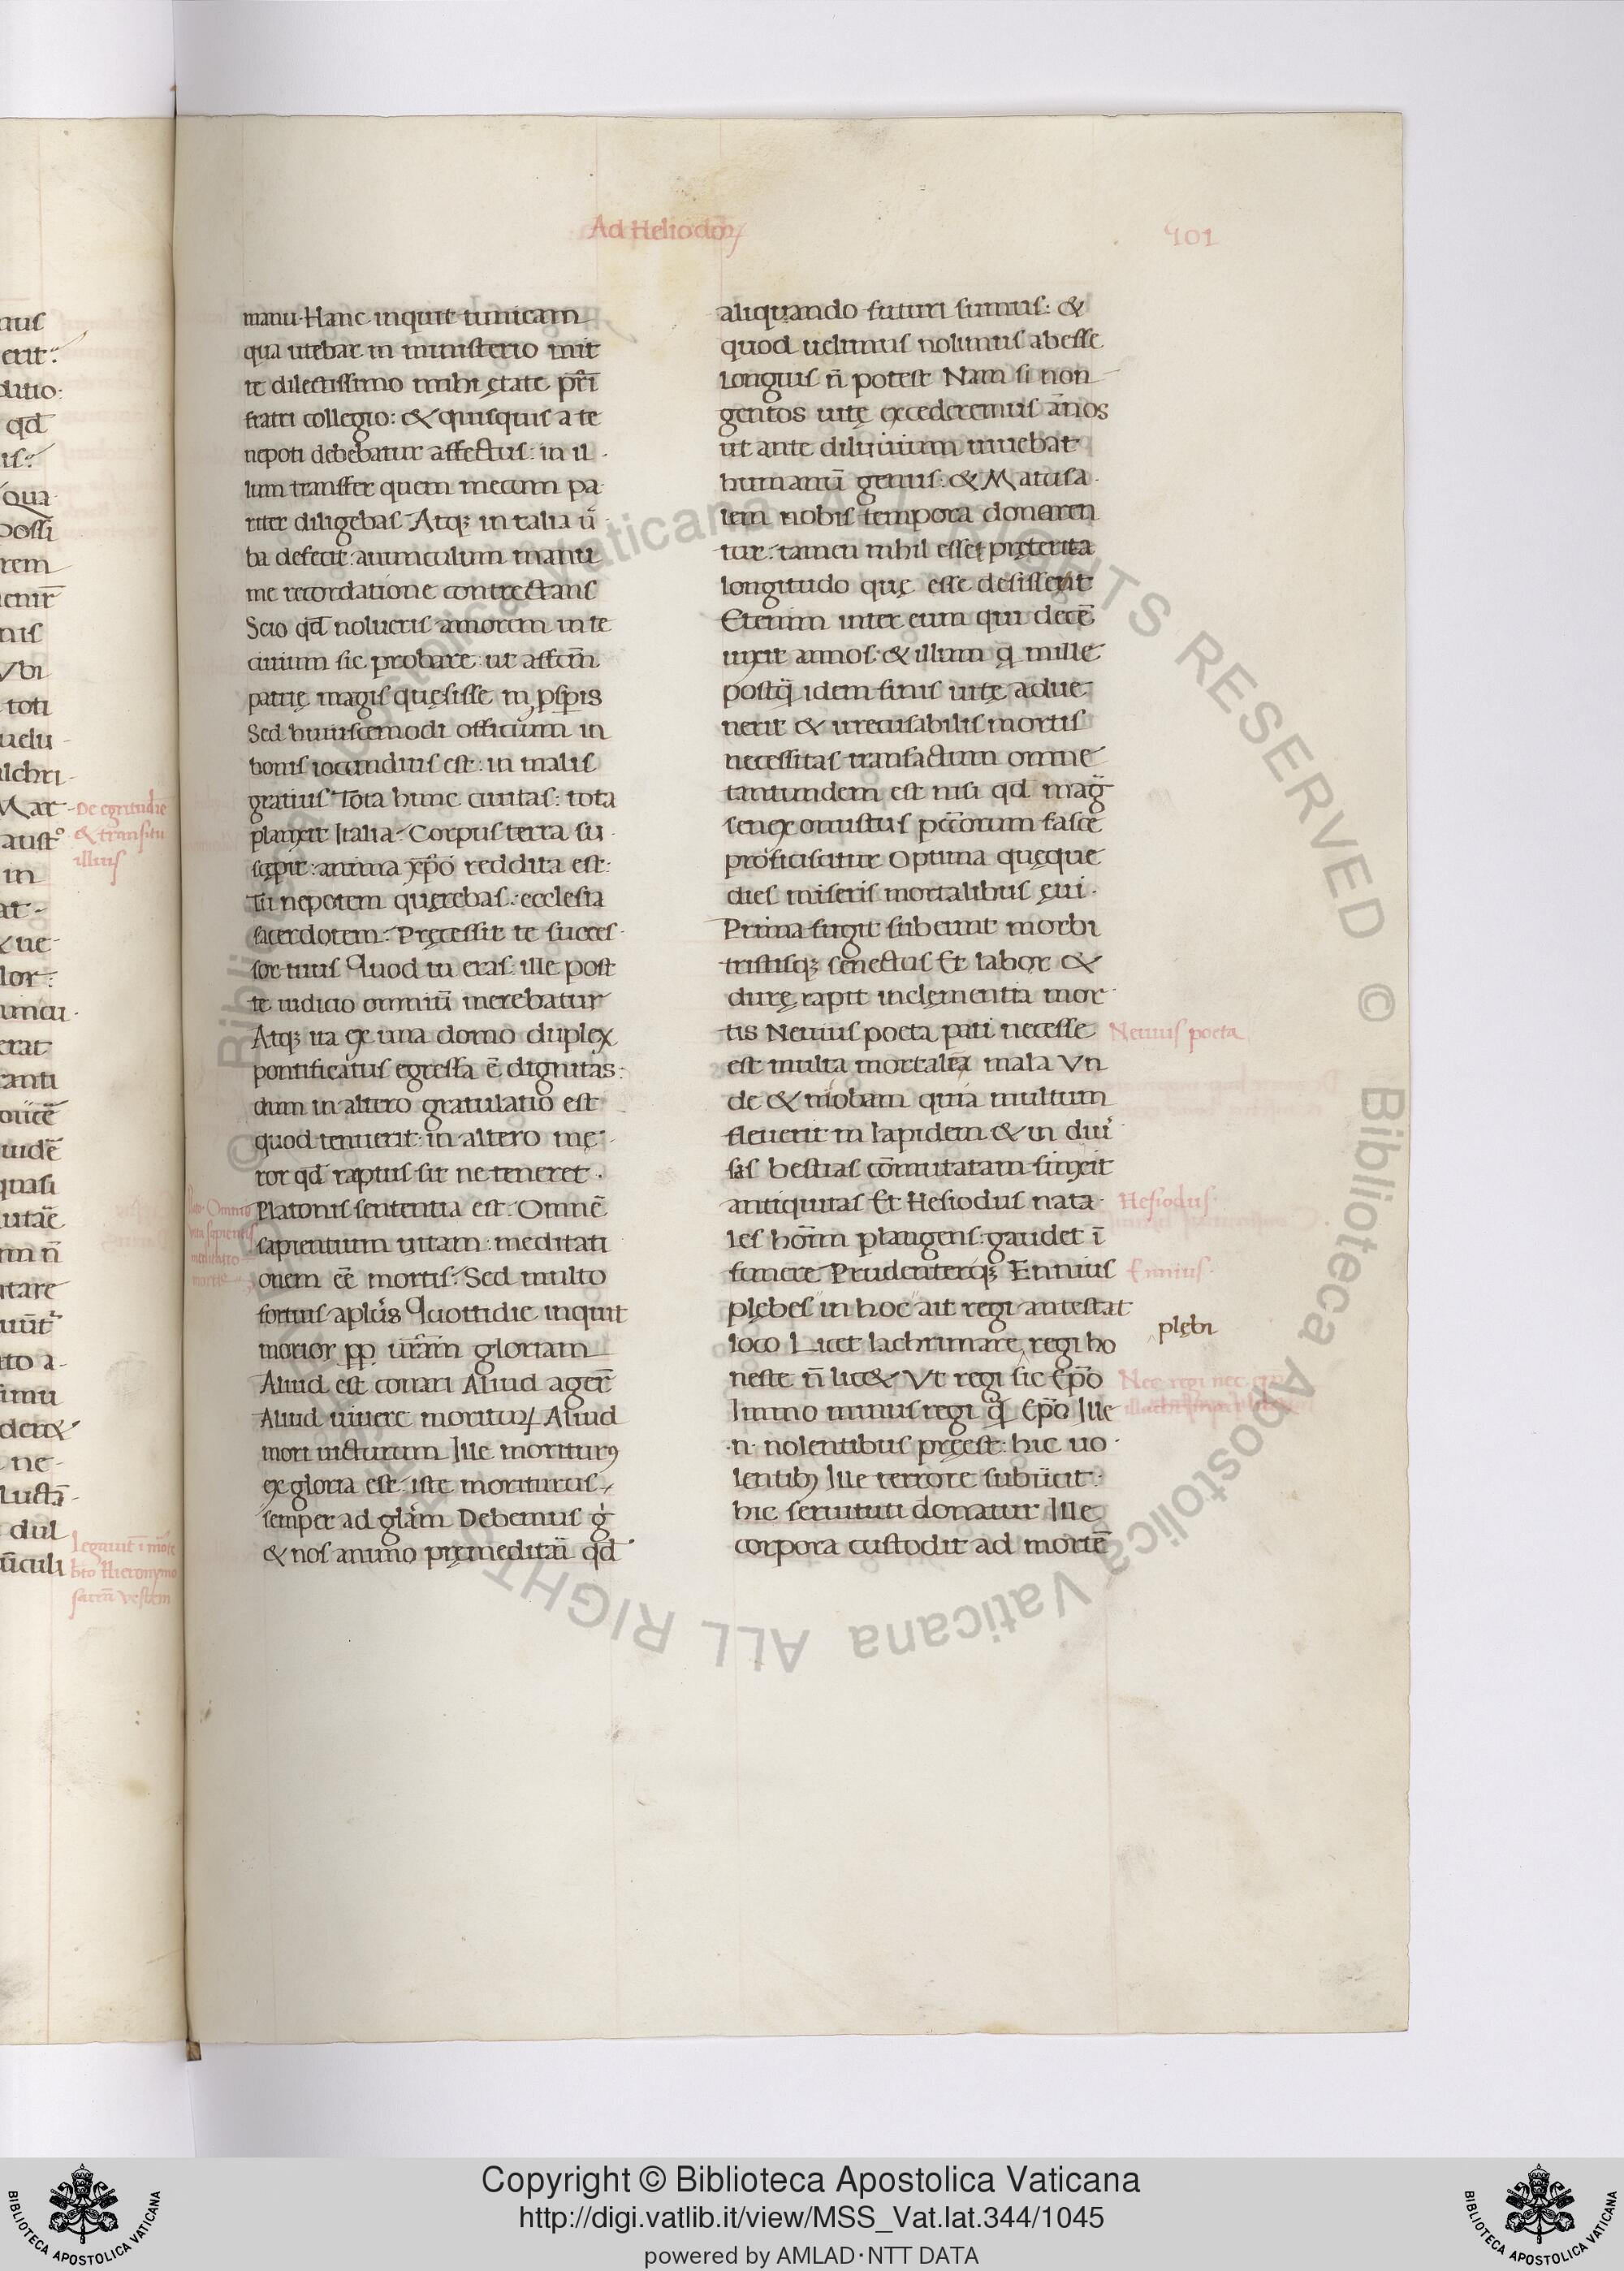 Ad Heliodoꝝ
401
manu. Hanc inquit tunicam
qua utebar in ministerio mit
te dilectissimo mihi ętate pr̄i
fratri collegio: & quisquis a te
nepoti debebatur affectus: in il
lum transfer quem mecum pa
riter diligebas. Atqꝫ in talia ū
ba defecit: auunculum manu
me recordatione contrectans
Scio qd̄ nolueris amorem in te
ciuium sic probare: ut affcm̄
patrię magis quęsisse in ꝓspis
Sed huiuscemodi officium in
bonis iocundius est: in malis
gratius Tota hunc ciuitas: tota
planxit Italia. Corpus terra su
scępit: anima xp̄o reddita est:
Tu nepotem quęrebas: ecclesia
sacerdotem. Pręcessit te succes
sor tuus Quod tu eras: ille post
te iudicio omniū merebatur
Atqꝫ ita ex una domo duplex
pontificatus egressa ē dignitas:
dum in altero gratulatio est
quod tenuerit: in altero mę
ror qd̄ raptus sit ne teneret.
Platonis sententia est. Omnē
sapientium uitam: meditati
onem eē mortis. Sed multo
fortius aplūs Quottidie inquit
morior ꝑp ur̄am gloriam
Aliud est conari Aliud ager̄
Aliud uiuere morituꝝ Aliud
mori uicturum Ille morituꝰ
ex gloria est: iste moriturus
semper ad glām Debemus g̊
& nos animo pręmeditari qd̄
aliquando futuri sumus: &
quod uelimus nolimus abesse
longius n̄ potest Nam si non
gentos uitę excederemus annos
ut ante diluuium uiuebat
humanū genus: & Matusa
lem nobis tempora donaren
tur: tamen nihil esset pręterita
longitudo quę esse desisserit
Etenim inter eum qui decē
uixit annos: & illum q̄ mille
postq̄ idem finis uitę adue
nerit & irrecusabilis mortis
necessitas transactum omne
tantundem est nisi qd̄ mag̃
senex onustus pcc̄orum fasce
proficiscitur Optima quęque
dies miseris mortalibus ęui
Prima fugit subeunt morbi
tristisqꝫ senectus Et labor &
durę rapit inclementia mor
tis Neuius poeta pati necesse
est multa mortalem mala Vn
de & niobam quia multum
fleuerit in lapidem & in diui
sas bestias cōmutatam finxit
antiquitas Et Hesiodus nata
les hoīm plangens: gaudet ī
funere. Prudenterqꝫ Ennius
plębes in hoc ait regi antestat
loco Licet lachrimare regi ho
neste n̄ lic& Vt regi sic Ep̄o
Immo minus regi q̄ Ep̄o Ille
.n. nolentibus pręest: hic uo
lentibꝰ Ille terrore subiicit:
hic seruituti donatur Ille
corpora custodit ad mortē
Neuius poeta
Hesiodus.
Ennius.
plębi
De egritudīe
& transitu
illius
Copyright © Biblioteca Apostolica Vaticana
http://digi.vatlib.it/view/MSS_Vat.lat.344/1045
powered by AMLAD·NTT DATA
BIBLIOTECA APOSTOLICA VATICANA
BIBLIOTECA APOSTOLICA VATICANA